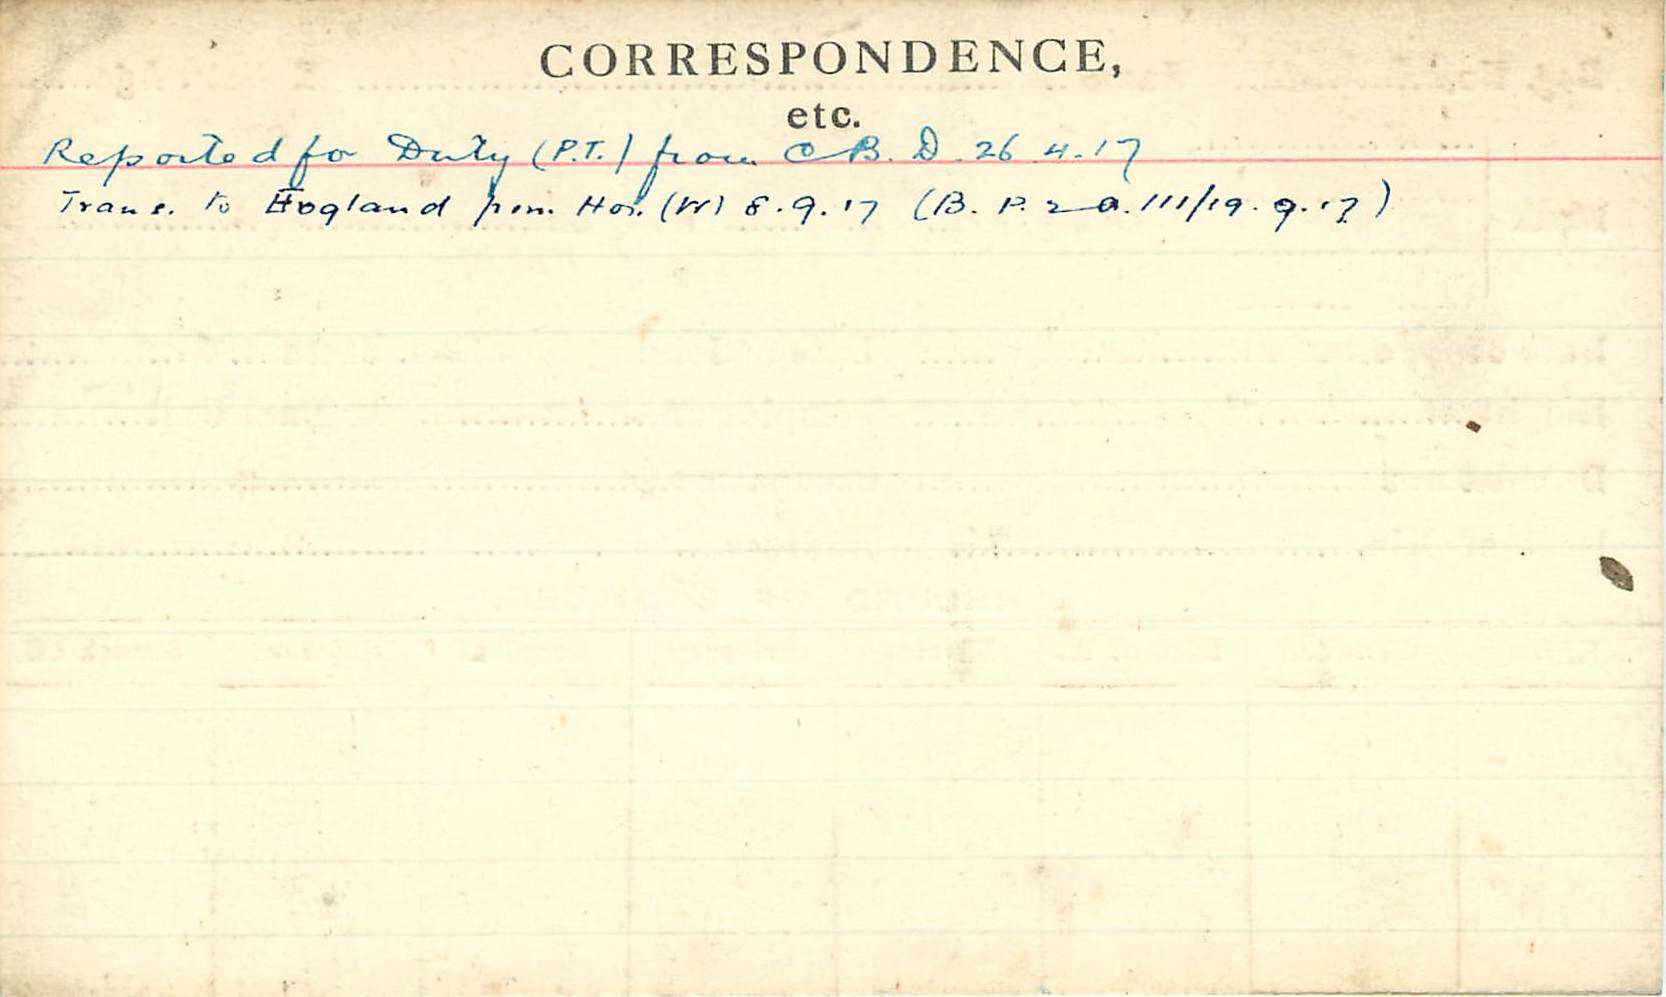 CORRESPONDENCE,
etc.
Reported for Duty (P.T.) from C B. D. 26.4.17
Trans. to England from Hos. (W) 8.9.17 (B. P. 2 a. 111/19.9.17)